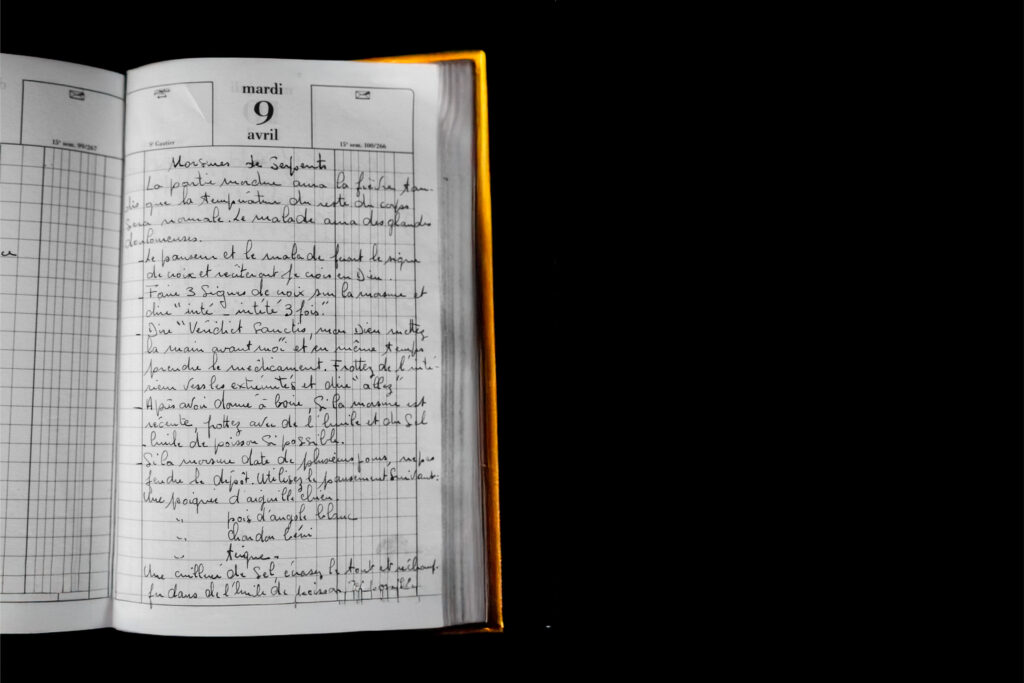 mardi
9
avril
15e sem. 99/267
S Gautier
15e sem. 100/266
Morsures de Serpents
La partie mordue aura la fièvre tan-
dis que la température du reste du corps
Sera normale. Le malade aura des glandes
douloureuses.
- Le panseur et le malade feront le signe
de croix et réciteront Je crois en Dieu.
- Faire 3 Signes de croix sur la morsure et
dire "inté - intété 3 fois"
- Dire "Vendict Sanctis, mon Dieu mettez
la main avant moi" et en même temps
prendre le médicament. Frottez de l'inté-
rieur vers les extrémités et dire "allez"
- Après avoir donné à boire, Si la morsure est
récente, frottez avec de l'huile et du Sel
- huile de poisson si possible.
- Si la morsure date de plusieurs jours, ne pas
fendre le dépôt. Utilisez le pansement Suivant:
Une poignée d'aiguille chien
" pois d'angole blanc
" chardon béni
" teigne.
Une cuillère de Sel, écrasez le tout et réchauf-
fer dans de l'huile de poisson si possible